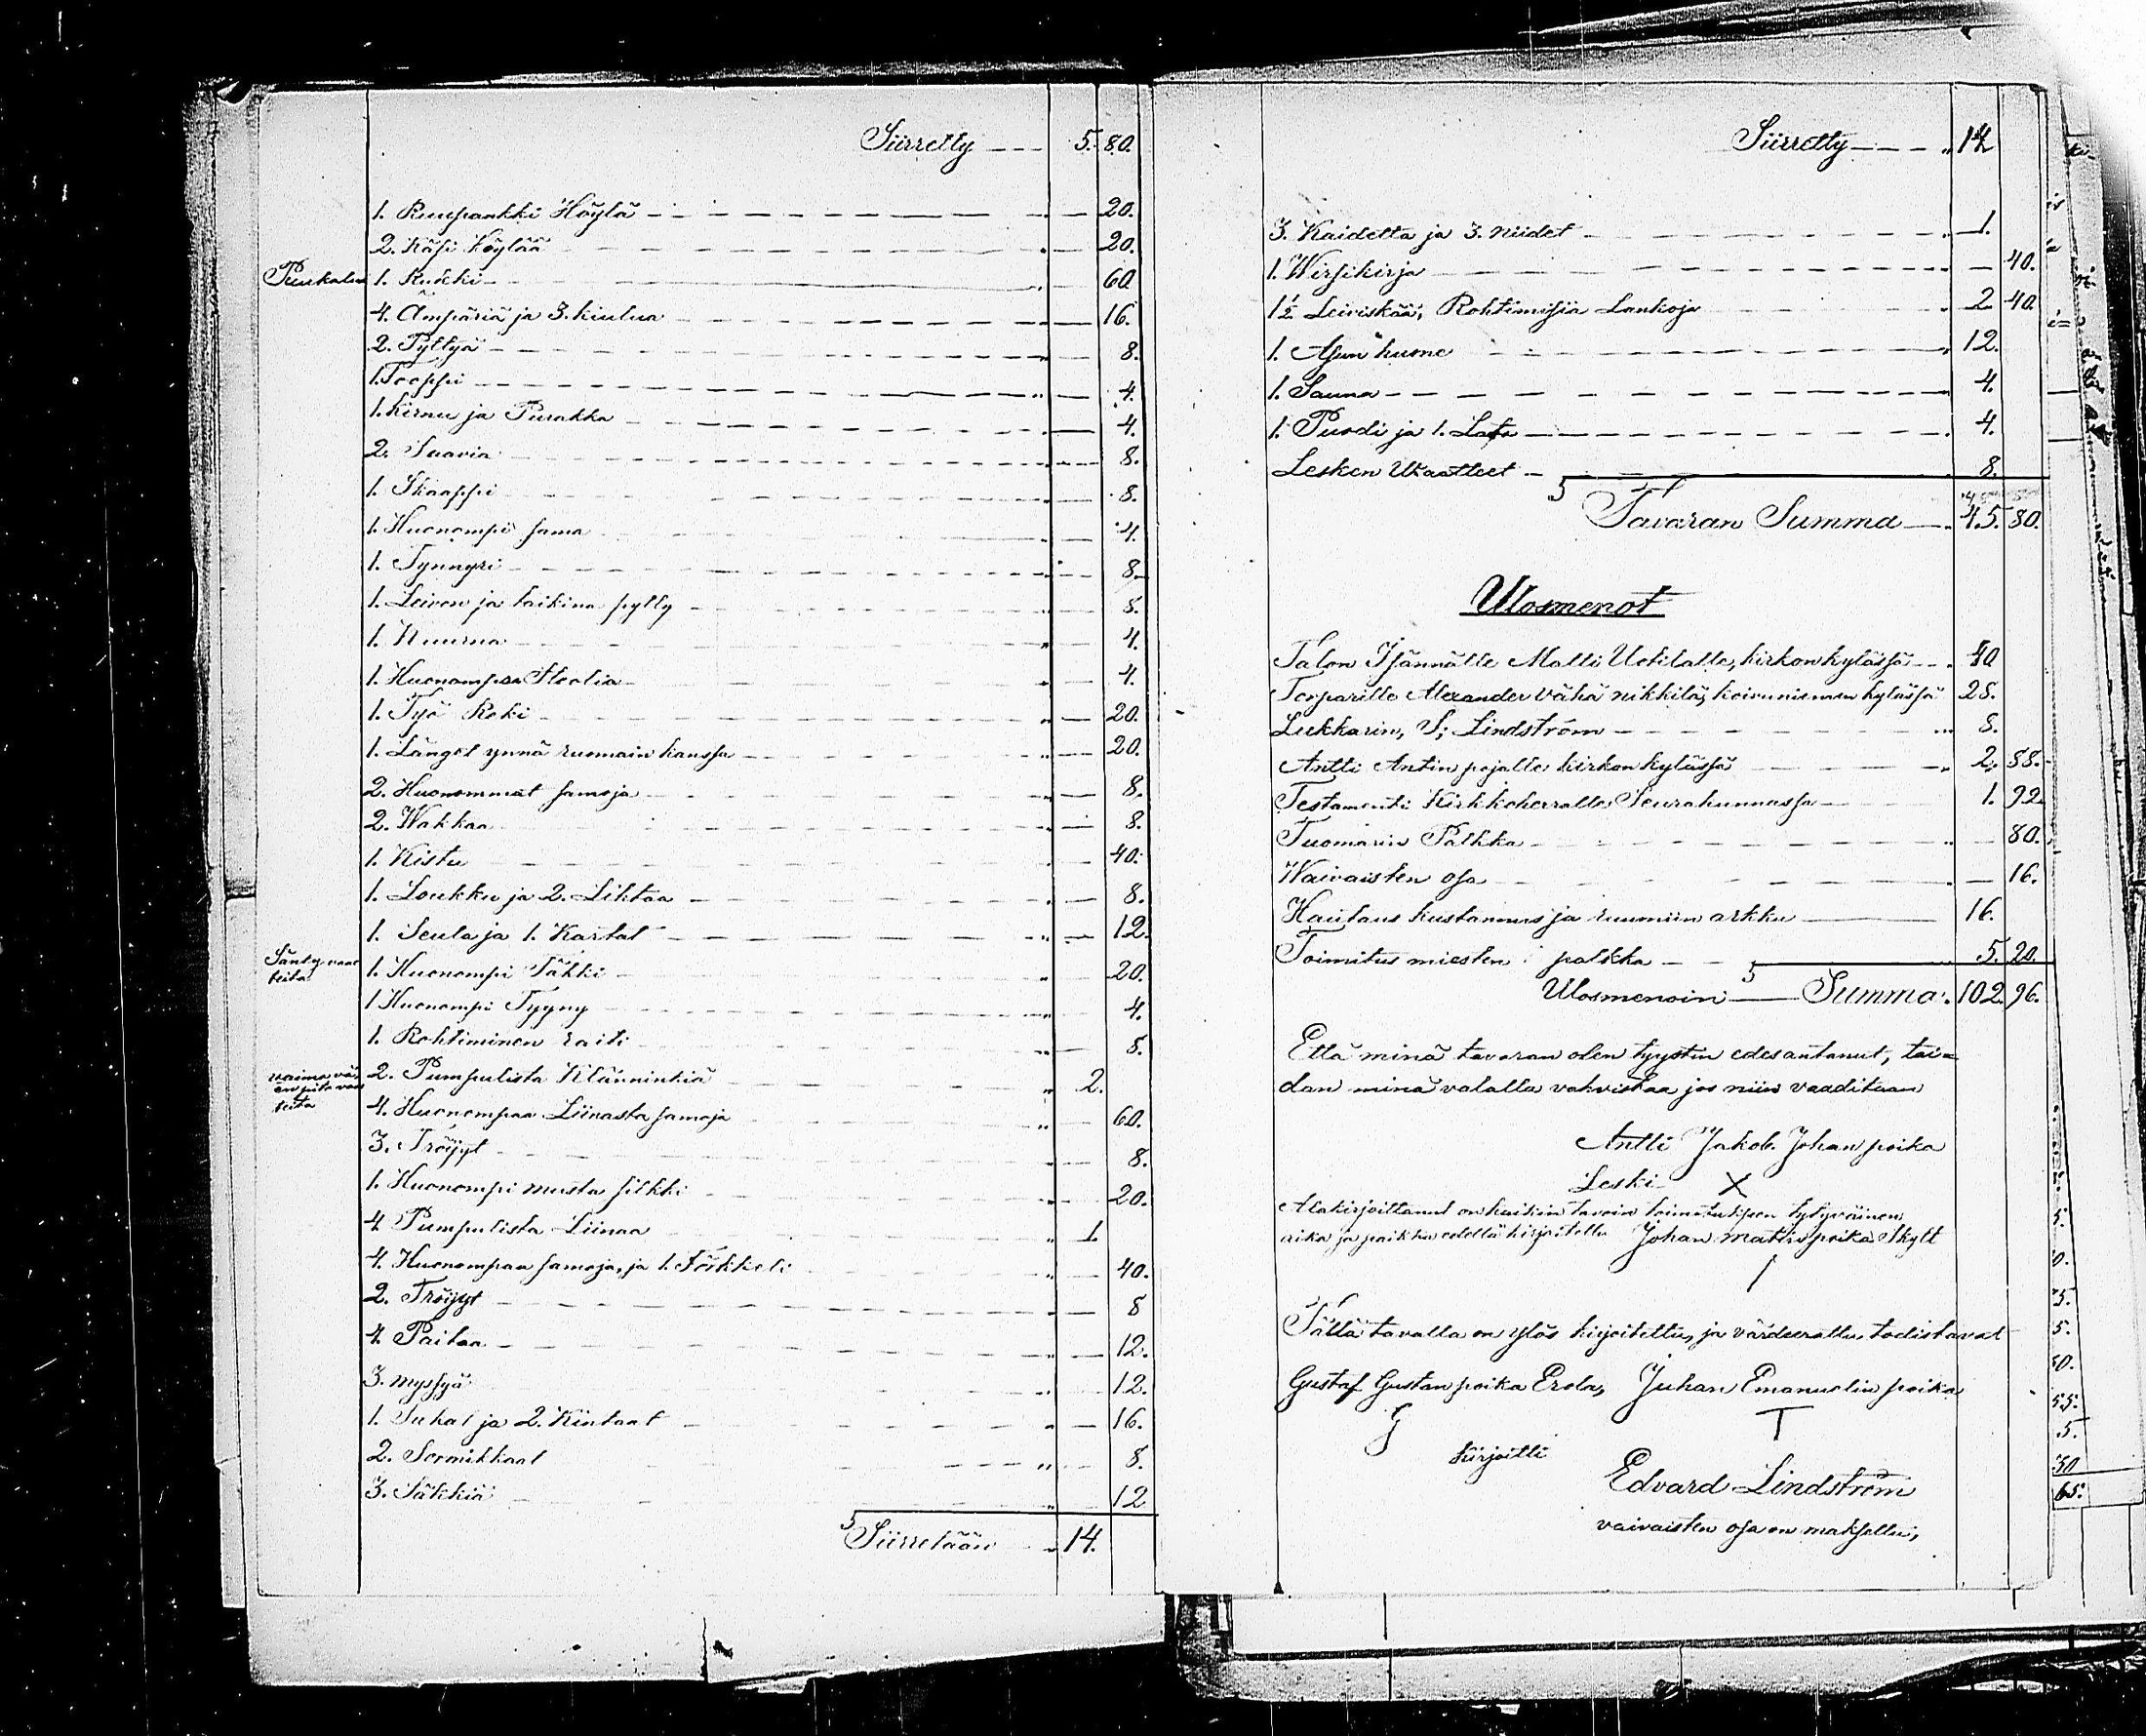 Siirretty - - - 5. 80.
1. Ruupankki Höylä - - - 20.
2. Käsi Höylää - - - 20.
Puukalua 1. Rukki - - - 60
4. Ämpäriä ja 3. kiulua - - - 16.
2. Pyttyä - - - 8.
1. Tooppi - - - 4.
1. kirnu ja Purakka - - - 4.
2. Saavia - - - 8.
1. Skaappi - - - 8.
1. Huonompi sama - - - 4.
1. Tynnyri - - - 8.
1. Leiven ja taikina pytty - - - 8.
1. Kuurna - - - 4.
1. Huonompaa Stoolia - - - 4.
1. Työ Reki - - - 20.
1. Länget ynnä ruomain kanssa - - - 20.
2. Huonommat samoja - - - 8.
2. Wakkaa - - - 8.
1. Kistu - - - 40.
1. Loukku ja 2. Lihtaa - - - 8.
1. Seula ja 1. Kartat - - - 12.
Sänky vaat
teita 1. Huonompi Täkki - - - 20.
1 Huonompi Tyyny - - - 4.
1. Rohtiminen raiti - - - 8.
vaimo vä
en pito vaa
teita 2. Pumpulista Klänninkiä 2.
4. Huonompaa Liinasta samoja 60.
3. Tröijyt - - - 8.
1. Huonompi musta silkki 20.
4. Pumpulista Liinaa 1.
4. Huonompaa samoja, ja 1. Förkkeli 40.
2. Tröijyt - - - 8
4. Paitaa - - - 12.
3. myssyä 12.
1. Sukat ja 2. Kintaat 16.
2. Sormikkaat - - - 8.
3. Säkkiä 12
Siirretään 14.
Siirretty - - - 14
3. Kaidetta ja 3. niidet - - - 1.
1. Wirsikirja - - - 40.
1½ Leiviskää, Rohtimisia Lankoja 2 40.
1. Asun huone - - - 12.
1. Sauna - - - 4.
1. Puodi ja 1. Lato - - - 4.
Lesken Waatteet - 8.
Tavaran Summa 45. 80.
Ulosmenot
Talon Isännälle Matti Uotilalle, kirkon kylässä - - 40
Torparille Alexander Vähä nikkilä, koivuniemen kylässä 28.
Lukkarin, S; Lindström - - - 8.
Antti Antin pojalle kirkon kylässä 2. 88.
Testamenti Kirkkoherralle Seurakunnassa 1. 92.
Tuomarin Palkka - - - 80.
Waivaisten osa - - - 16.
Hautaus kustannus ja ruumiin arkku 16.
Toimitus miesten palkka - - 5. 20.
Ulosmenoin Summa. 102. 96.
Että minä tavaran olen tyystin edesantanut, tai=
dan minä valalla vahvistaa jos niin vaaditaan
Antti Jakob. Johan poika
Leski X
Alakirjoittanut on kaikin tavoin toimituksen tytyväinen,
aika ja paikka edellä kirjoitettu Johan mattis poika Skytt
Tällä tavalla on ylös kirjoitettu, ja värdeerattu, todistavat
Gustaf Gustan poika Erola, Juhan Emanuelin poika
G T
kirjoitti
Edvard Lindström
vaivaisten osa on maksettu,